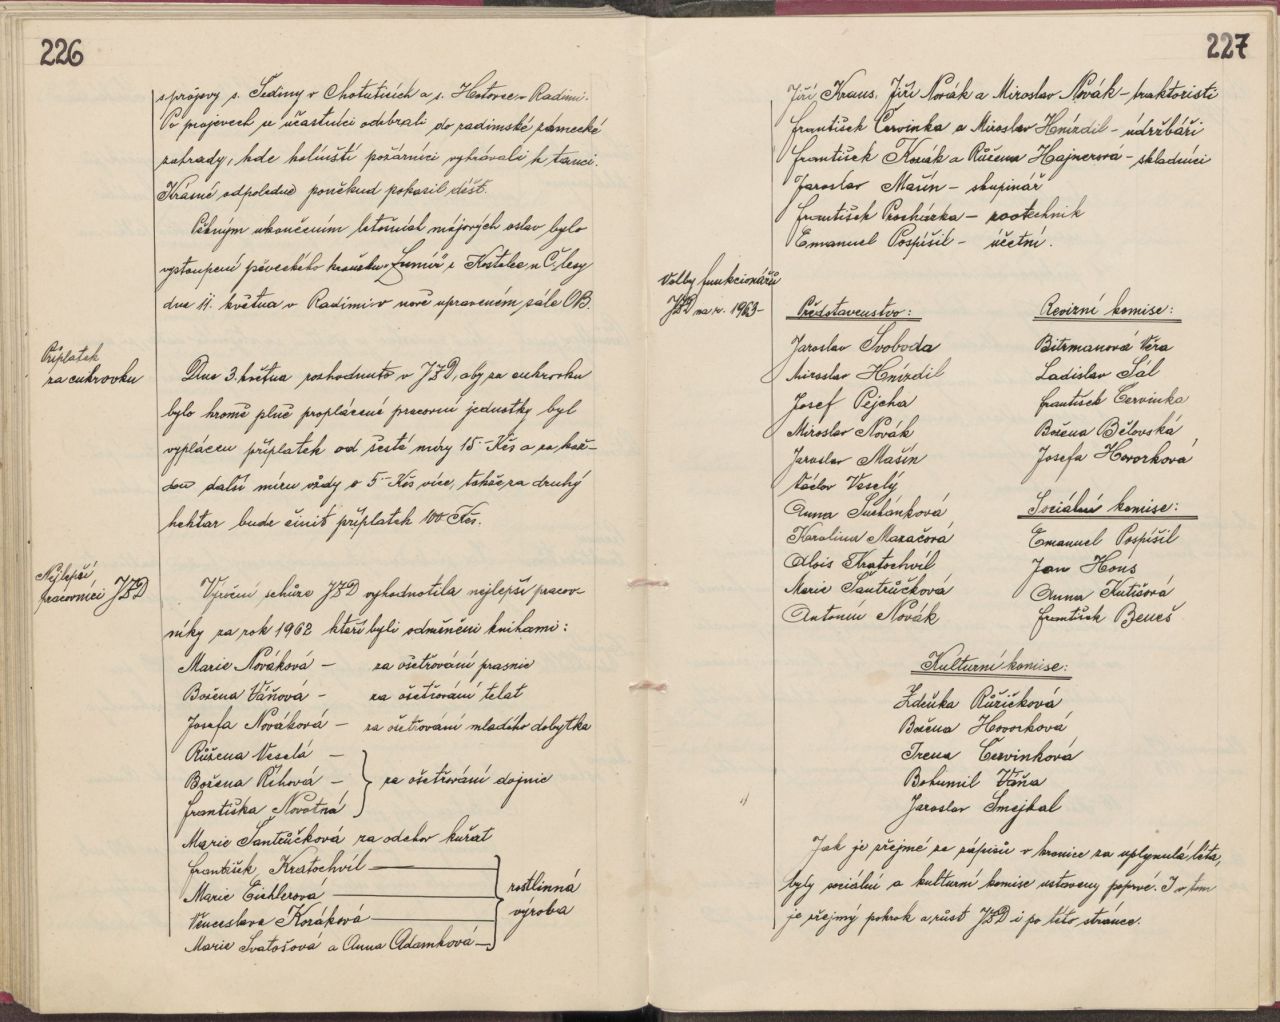 226
s projevy s. Šediny v Chotuticích a s. Hotovce v Radimi.
Po projevech se účastníci odebrali do radimské zámecké
zahrady, kde kolínští požárníci vyhrávali k tanci.
Krásné odpoledne poněkud pokazil déšť.
Pěkným ukončením letošních májových oslav bylo
vystoupení pěveckého kroužku Lumír z Kostelce n. Č. lesy
dne 11. května v Radimi v nově upraveném sále OB.
Příplatek
za cukrovku
Dne 3. května rozhodnuto v JZD, aby za cukrovku
bylo kromě plně proplácené pracovní jednotky byl
vyplácen příplatek od šesté míry 15 Kčs a za kaž-
dou další míru vždy o 5 Kčs více, takže za druhý
hektar bude činit příplatek 100 Kčs.
Nejlepší
pracovníci JZD
Výroční schůze JZD vyhodnotila nejlepší pracov-
níky za rok 1962 kteří byli odměněni knihami:
Marie Nováková – za ošetřování prasnic
Božena Váňová – za ošetřování telat
Josefa Nováková – za ošetřování mladého dobytka
Růžena Veselá –
Božena Říhová – za ošetřování dojnic
Františka Novotná
Marie Šantrůčková za odchov kuřat
František Kratochvíl
Marie Eichlerová rostlinná
Věnceslava Kozáková výroba
Marie Svatošová a Anna Adamková –
227
Jiří Kraus, Jiří Novák a Miroslav Novák – traktoristi
František Červinka a Miroslav Hnízdil – údržbáři
František Kozák a Růžena Hajnerová – skladníci
Jaroslav Mašín – skupinář
František Procházka – zootechnik
Emanuel Pospíšil – účetní.
Volby funkcionářů
JZD na r. 1963 –
Představenstvo:
Jaroslav Svoboda
Miroslav Hnízdil
Josef Pejcha
Miroslav Novák
Jaroslav Mašín
Václav Veselý
Anna Šustánková
Karolina Mazačová
Alois Kratochvíl
Marie Šantrůčková
Antonín Novák
Revizní komise:
Bitrmanová Věra
Ladislav Sál
František Červinka
Božena Bělovská
Josefa Hovorková
Sociální komise:
Emanuel Pospíšil
Jan Hons
Anna Kutišová
František Beneš
Kulturní komise:
Zdeňka Růžičková
Božena Hovorková
Irena Červinková
Bohumil Váňa
Jaroslav Smejkal
Jak je zřejmé ze zápisů v kronice za uplynulá léta,
byly sociální a kulturní komise ustaveny poprvé. I v tom
je zřejmý pokrok a růst JZD i po této stránce.